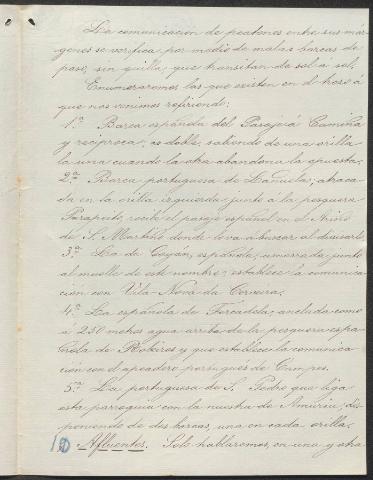 La comunicacion de peatones entre sus már-
genes se verifica por medio de malas barcas de
paso, sin quilla, que transitan de sol á sol.
Enumeraremos las que existen en el trozo á
que nos venimos refiriendo:
1.ª Barca española del Pasaje á Camiña
y recíproca; es doble, saliendo de una orilla
la una cuando la otra abandona la opuesta.
2.ª Barca portuguesa de Lañelas; atraca-
da en la orilla izquierda junto á la pesquera
recibe el pasaje español en el
de S. Martiño donde lo va á buscar al divisarlo.
3.ª La de Goyán, española, amarrada junto
al muelle de este nombre; establece la comunica-
ción con Vila-Nova da Cerveira.
4.ª La española de Forcadela, anclada como
á 250 metros agua arriba de la pesquera espa-
ñola de y que establece la comunica-
ción con el apeadero portugués de Campos.
5.ª La portuguesa de S. Pedro que liga
esta parroquia con la nuestra de Amorín; dis-
poniendo de dos barcas, una en cada orilla.
Afluentes. Solo hablaremos, en una y otra